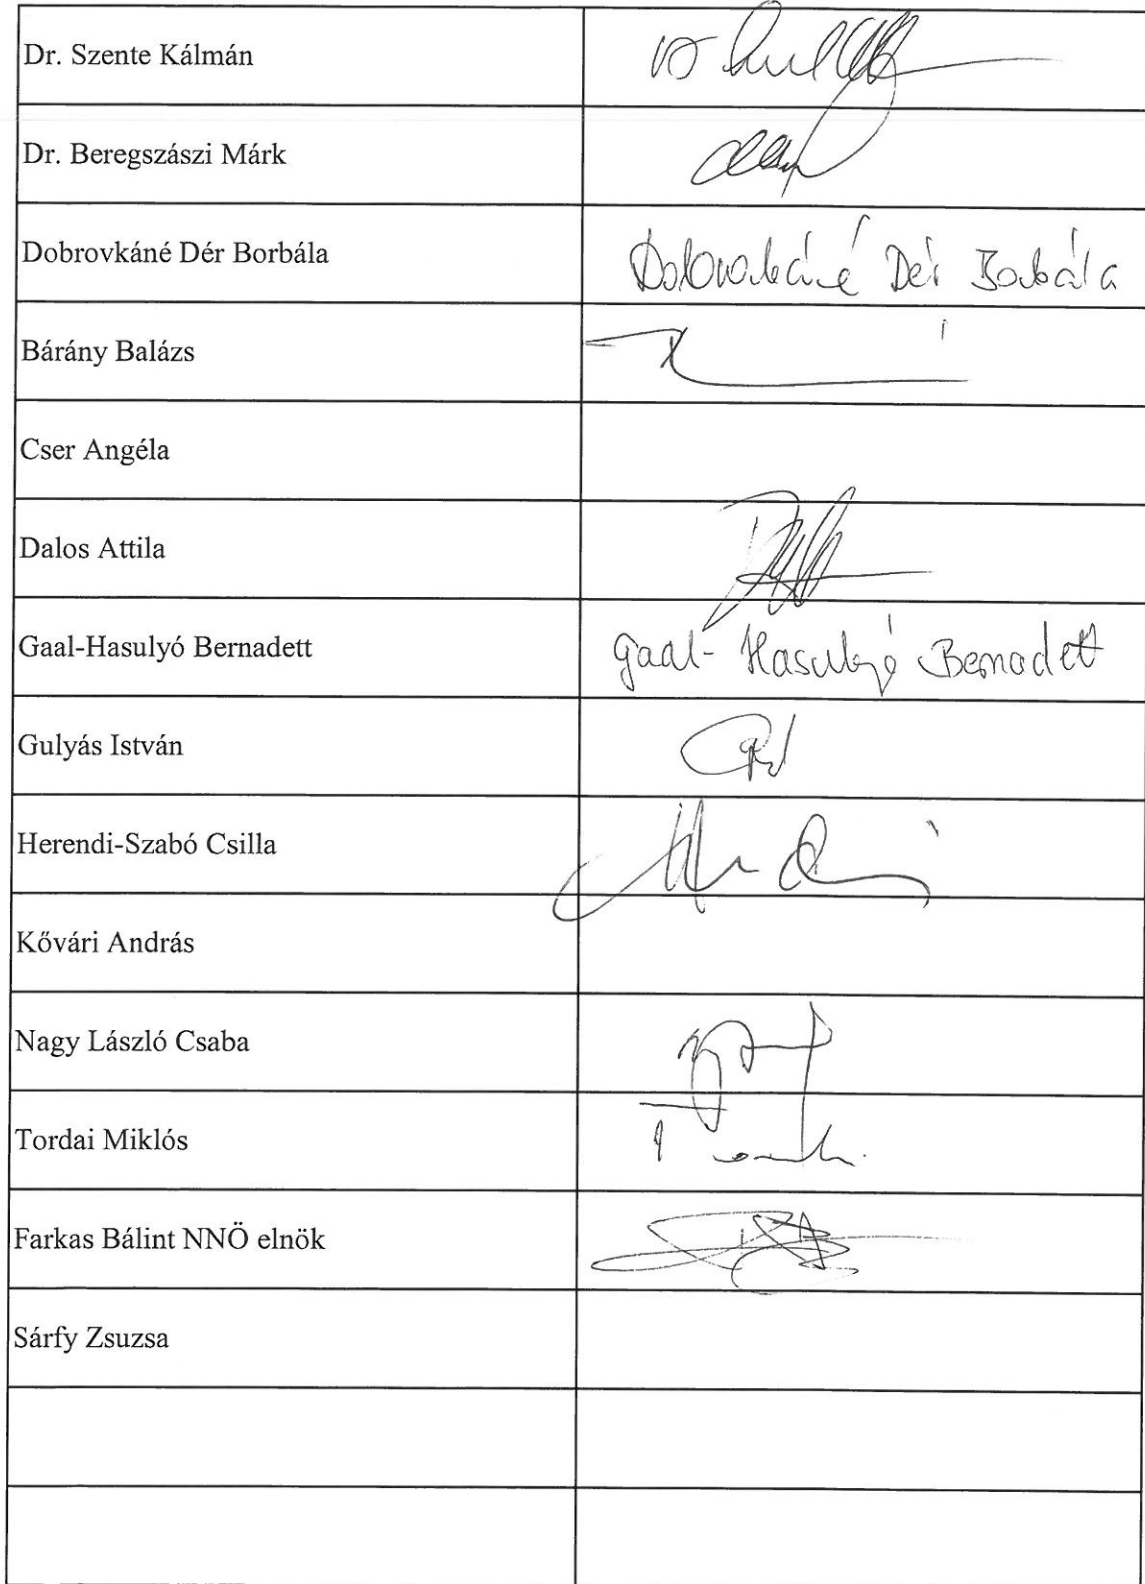 Dr. Szente Kálmán
Dr. Beregszászi Márk
Dobrovkáné Dér Borbála Dobrovkáné Dér Borbála
Bárány Balázs
Cser Angéla
Dalos Attila
Gaal-Hasulyó Bernadett Gaal-Hasulyó Bernadett
Gulyás István
Herendi-Szabó Csilla
Kővári András
Nagy László Csaba
Tordai Miklós
Farkas Bálint NNÖ elnök
Sárfy Zsuzsa